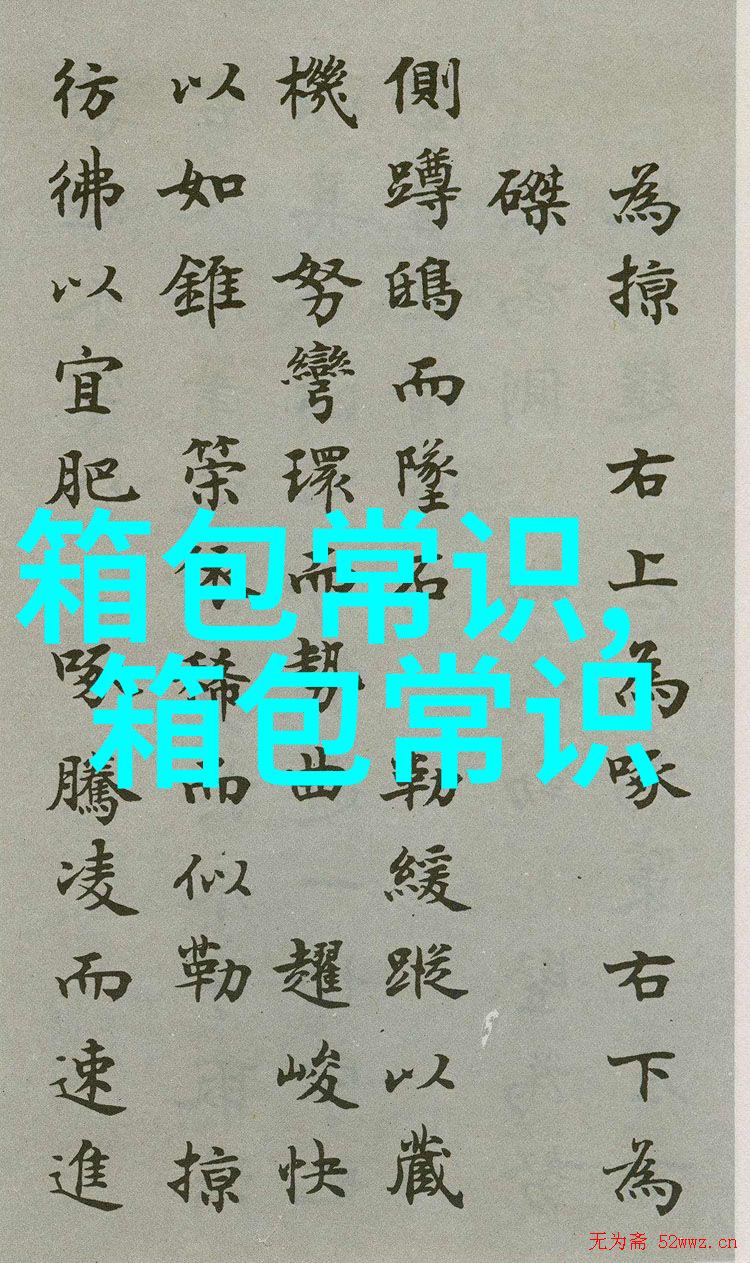 為掠 右上為啄 右下為
磔
側蹲鴟而墜石 勒緩蹤以藏
機 努彎環而勢曲 趯峻快
以如錐 策依稀而似勒 掠
彷彿以宜肥 啄騰凌而速進
箱包常识,
箱包常识
无为斋 52wwz.cn